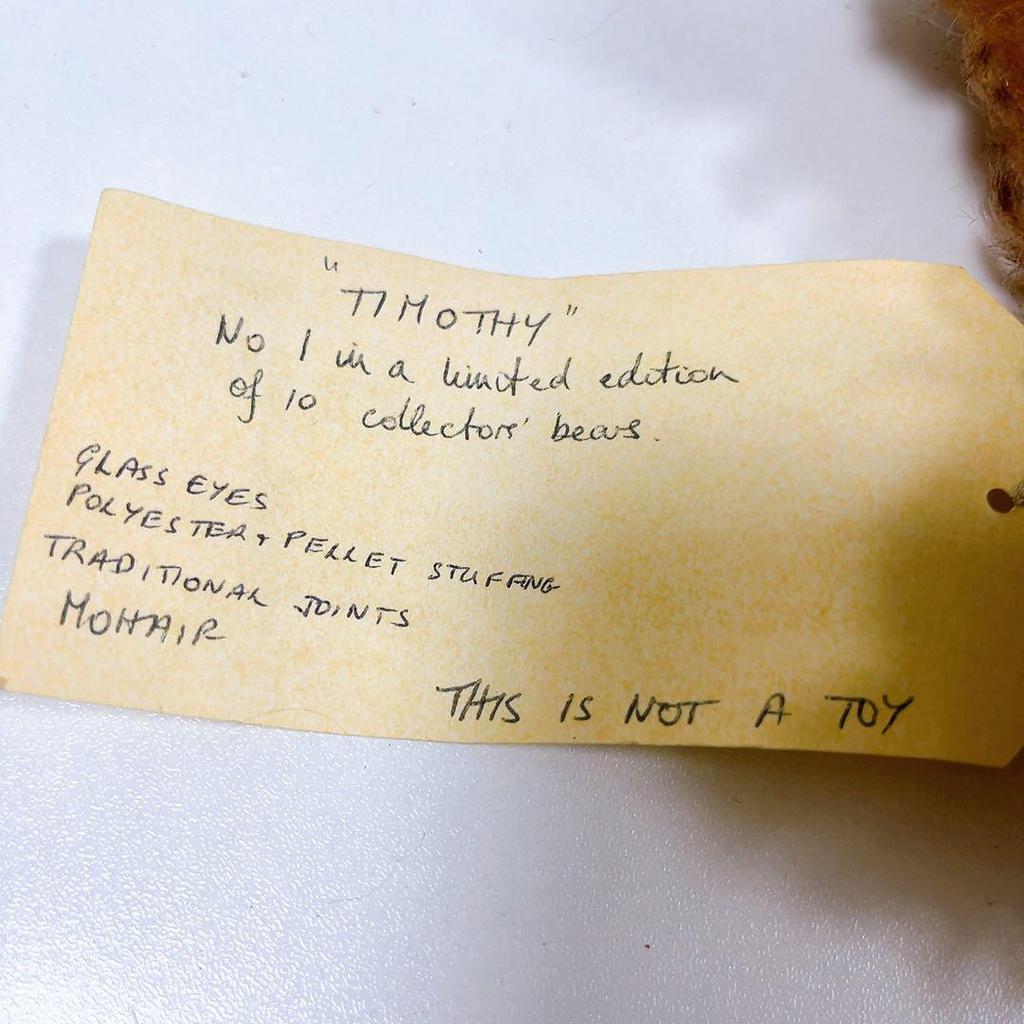 "TIMOTHY"
No 1 in a limited edition
of 10 collectors' bears.
GLASS EYES
POLYESTER + PELLET STUFFING
TRADITIONAL JOINTS
MOHAIR
THIS IS NOT A TOY